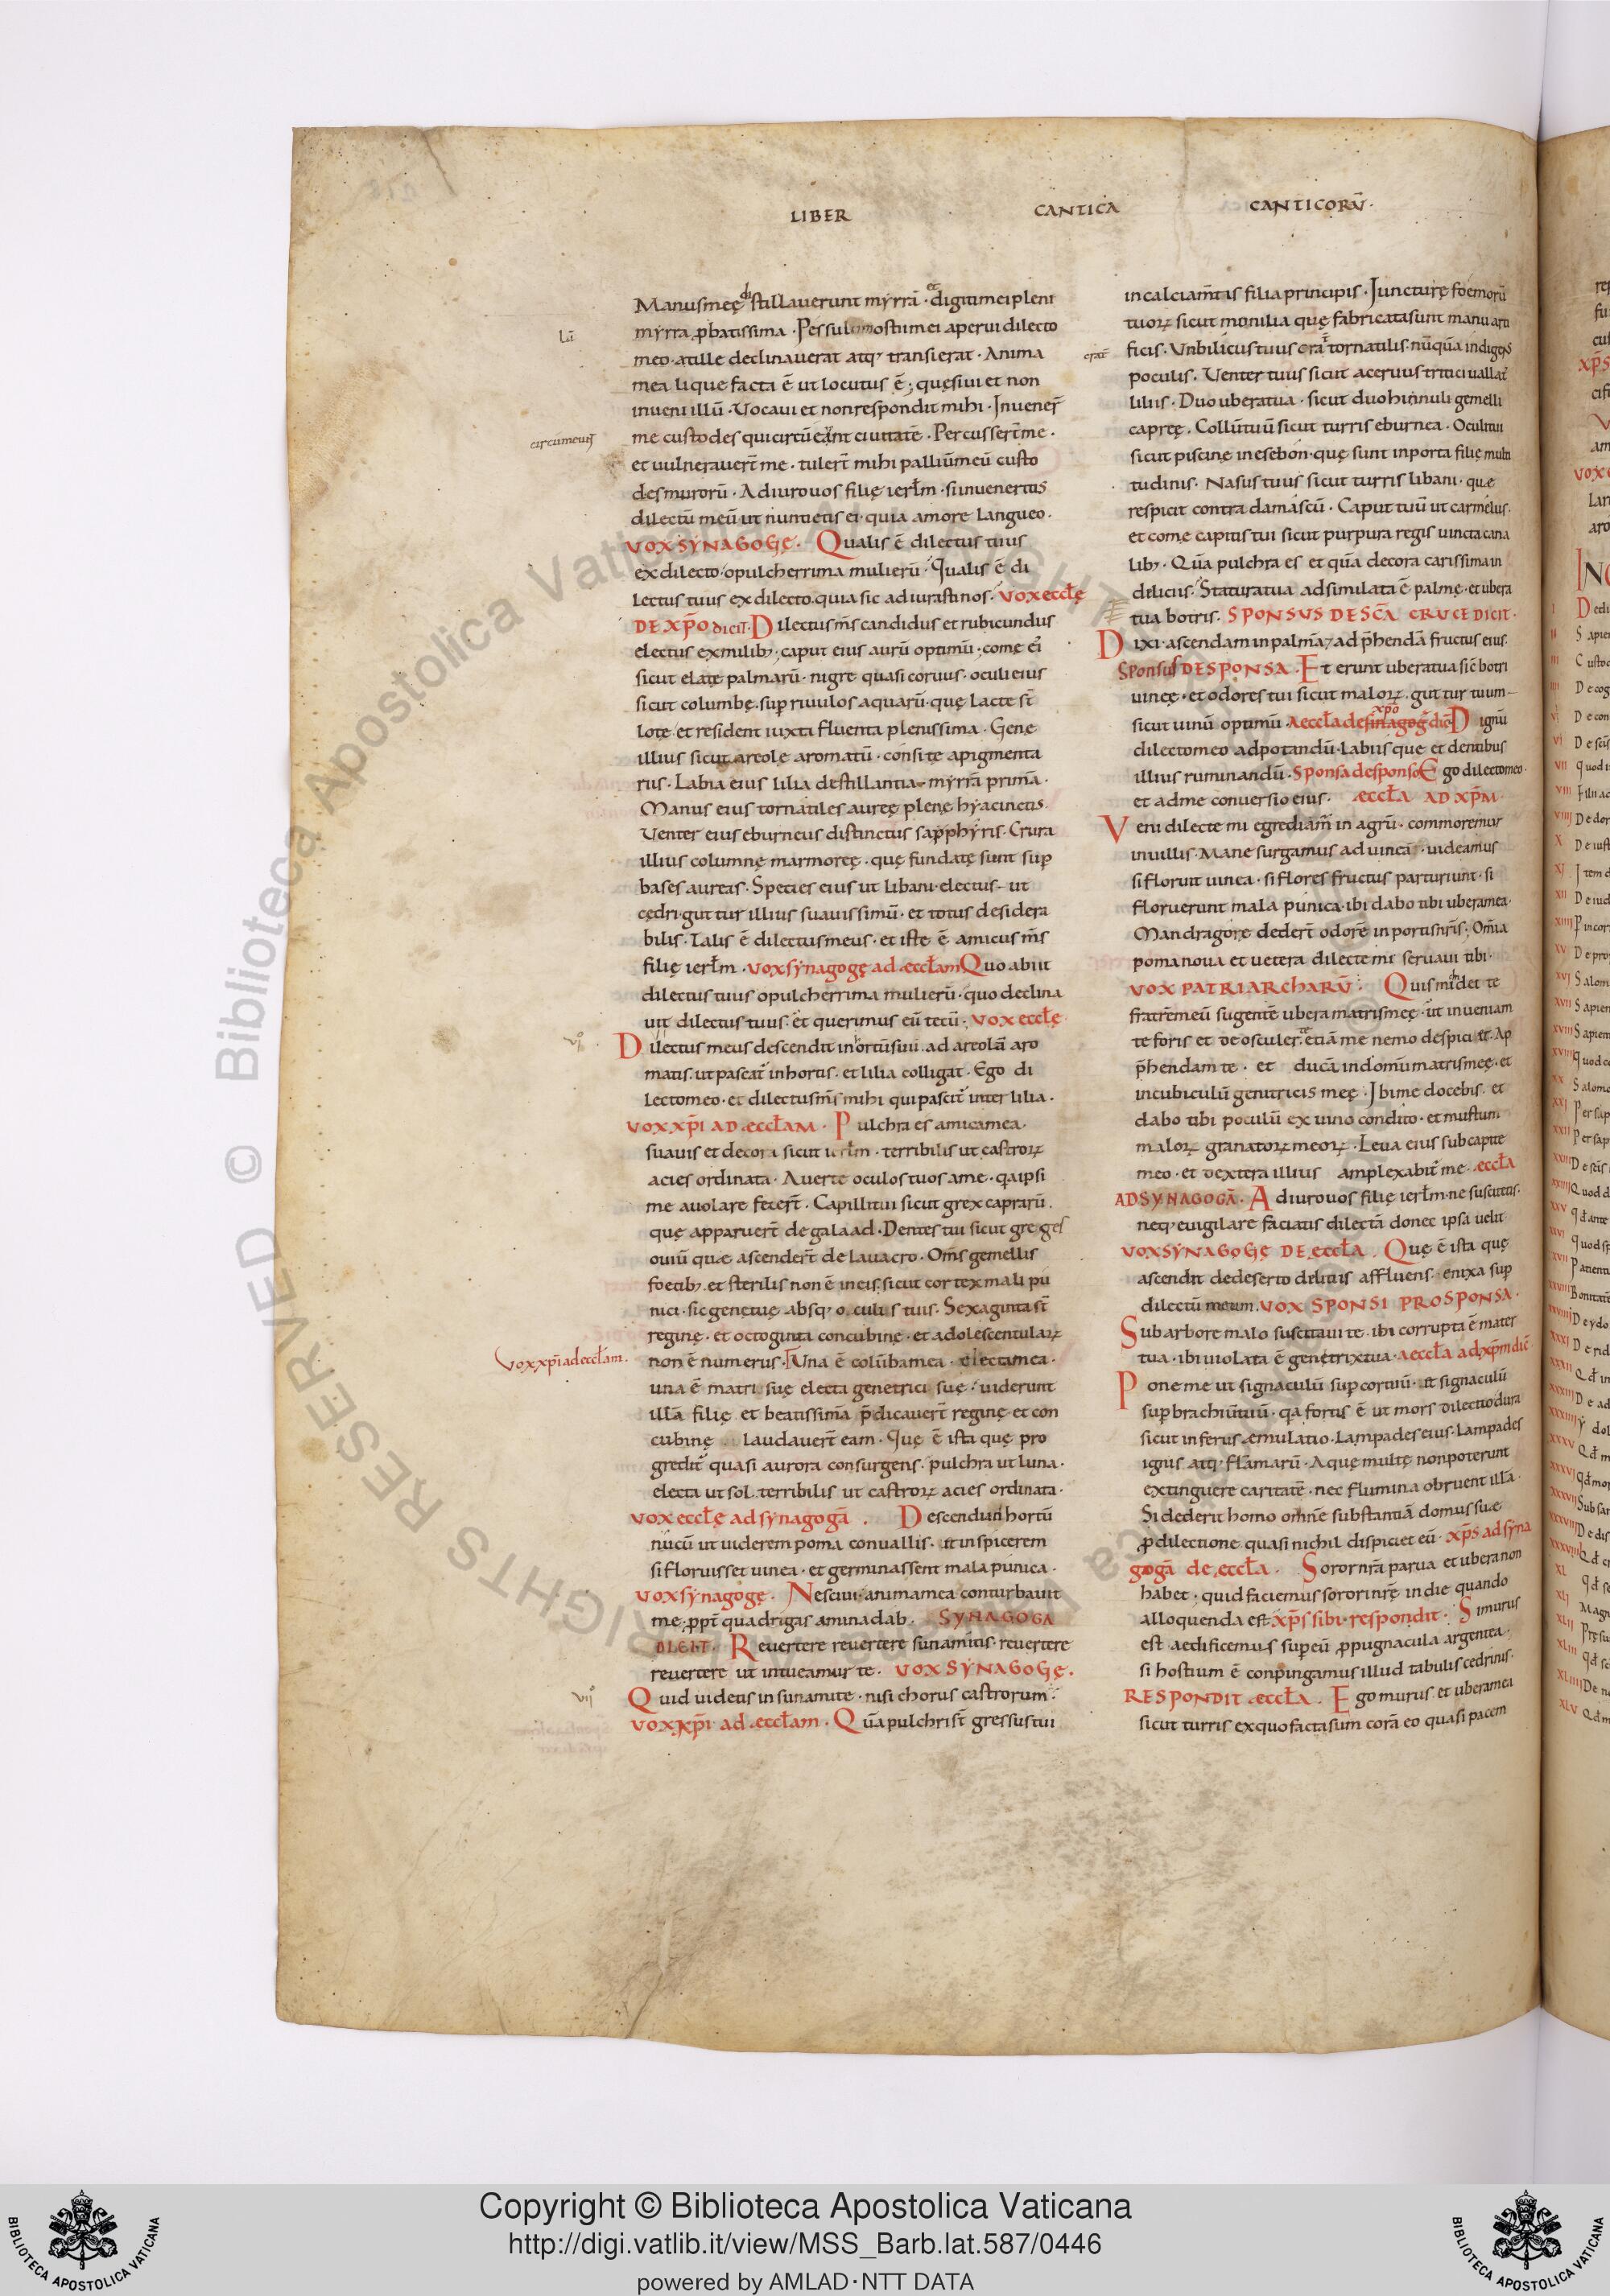 LIBER CANTICA CANTICORŪ·
Manusmeę distillauerunt myrrā · et digitimeipleni
myrra ꝓbatissima · Pessulumostiimei aperui dilecto
meo · atille declinauerat atq; transierat · Anima
mea liquefacta ē ut locutus ē; quęsiui et non
inueni illū · Vocaui et nonrespondit mihi · Inuener̄
me custodes quicircūeunt ciuitatē · Percusser̄tme ·
et uulnerauer̄t me · tuler̄t mihi palliūmeū custo
desmurorū · Adiurouos filię ierl̄m · siinueneritis
dilectū meū ut nuntietis ei · quia amore langueo ·
VOXSYNAGOGĘ · Qualis ē dilectus tuus
exdilecto · opulcherrima mulierū · Qualis ē di
lectus tuus exdilecto. quia sic adiurastinos · VOXeccl̄ę
DE XP̄O DICIT· Dilectusm̄s candidus et rubicundus
electus exmilib; · caput eius aurū optimū · comę ei'
sicut elatę palmarū · nigre quasi coruus · oculi eius
sicut columbę. suꝑ riuulos aquarū · quę lacte st̄
lotę · et resident iuxta fluenta plenissima · Genę
illius sicut areolę aromatū · consitę apigmenta
riis · Labia eius lilia destillantia myrrā primā ·
Manus eius tornatiles aureę plenę hyacinctis.
Venter eius eburneus distinctus sapphyris · Crura
illius columnę marmoreę · quę fundatę sunt suꝑ
bases aureas · Species eius ut libani · electus ut
cędri · guttur illius suauissimū · et totus desidera
bilis · Talis ē dilectusmeus · et iste ē amicus m̄s
filię ierl̄m · voxsynagogę ad .eccl̄am Quo abiit
dilectus tuus opulcherrima mulierū · quo declina
uit dilectus tuus. et queremus eū tecū · VOX eccl̄ę
Dilectus meus descendit inhortūsuū . ad areolā aro
matis. ut pascat' inhortis · et lilia colligat · Ego di
lectomeo · et dilectusm̄s mihi qui pascit' inter lilia ·
VOXXP̄I AD .eccl̄AM · Pulchra es amicamea ·
suauis et decora sicut ierl̄m · terribilis ut castroꝝ
acies ordinata · Auerte oculos tuos ame · q̄aipsi
me auolare fecer̄t · Capillitui sicut grex caprarū .
quę apparuer̄t degalaad · Dentes tui sicut greges
ouiū quæ ascender̄t de lauacro · Om̄s gemellis
foetib; et sterilis non ē ineis. sicut cortex mali pu
nici · sic genętuę absq; occultis tuis · Sexaginta st̄
reginę · et octoginta concubinę · et adolescentulaꝝ
non ē numerus · Una ē colūbamea · electamea ·
una ē matri suę electa genetrici suę · uiderunt
illā filię et beatissimā p̄dicauer̄t reginę et con
cubinę laudauer̄t eam · Quę ē ista quę pro
gredit' quasi aurora consurgens. pulchra ut luna ·
electa ut sol. terribilis ut castroꝝ acies ordinata ·
VOX eccl̄ę ad synagogā . Descendi in hortū
nucū ut uiderem poma conuallis · ut inspicerem
si floruisset uinea · et germinassent mala punica ·
voxsynagogę. Nesciui · animamea conturbauit
me · ꝓpt̄ quadrigas aminadab. SYNAGOGA
DICIT · Reuertere reuertere sunamitis · reuertere
reuertere ut intueamur te. VOX SYNAGOGĘ.
Quid uidetis in sunamite · nisi chorus castrorum:
VOXXP̄I ad .eccl̄am · Qūa pulchrist̄ gressustui
Lū
circūmeunt
vi°
Voxxp̄iadeccl̄am.
vii°
incalciam̄tis filia principis · Iuncturę foemorū
tuoꝝ sicut monilia quę fabricatasunt manu arti
ficis · Vnbilicustuus crat̄ tornatilis · nūquā indigens
poculis · Venter tuus sicut aceruus tritici uallat'
liliis · Duo uberatua · sicut duo hinnuli gemelli
capreę . Collūtuū sicut turris eburnea · Oculi tui
sicut piscinę inesebon · quę sunt inporta filię multi
tudinis · Nasus tuus sicut turris libani · quę
respicit contra damascū · Caput tuū ut carmelus ·
et comę capitis tui sicut purpura regis uincta cana
lib; · Qūa pulchra es et quā decora carissima in
diliciis · Statura tua adsimilata ē palmę · et ubera
tua botris. SPONSUS DE SC̄A CRUCE DICIT ·
Dixi · ascendam in palmā; adp̄hendā fructus eius.
Sponsus DESPONSA · Et erunt ubera tua sic̄ botri
uineę · et odores tui sicut maloꝝ. guttur tuum
sicut uinū optimū · Aeccl̄a de sinagoḡ xp̄o dic̄ Dignū
dilectomeo adpotandū · labiisque et dentibus
illius ruminandū · Sponsa desponso Ego dilectomeo ·
et adme conuersio eius. .eccl̄A AD XP̄M ·
Veni dilecte mi egrediam̄ in agrū · commoremur
inuillis · Mane surgamus ad uineā · uideamus
si floruit uinea · si flores fructus parturiunt · si
floruerunt mala punica · ibi dabo tibi uberamea ·
Mandragore deder̄t odorē in portisnr̄is; Om̄ia
poma noua et uetera dilecte mi seruaui tibi ·
VOX PATRIARCHARŪ: Quis mihi det te
fratrēmeū sugentē ubera matrismeę · ut inueniam
te foris et deosculer te. etiā me nemo despiciat. Ap
p̄hendam te · et ducā indomū matrismeę · et
incubiculū genitricis meę · Ibi me docebis. et
dabo tibi poculū ex uino condito · et mustum
maloꝝ granatoꝝ meoꝝ · Leua eius sub capite
meo · et dextera illius amplexabit' me · .eccl̄a
AD SYNAGOGĀ · Adiurouos filię ierl̄m · ne suscitetis ·
neq; euigilare faciatis dilectā donec ipsa uelit
VOXSYNAGOGĘ DE .eccl̄a . Quę ē ista quę
ascendit dedeserto diliciis affluens. enixa suꝑ
dilectū meum. VOX SPONSI PROSPONSA ·
Sub arbore malo suscitaui te · ibi corrupta ē mater
tua · ibi uiolata ē genetrixtua · Aeccl̄a adxp̄m dic̄
Pone me ut signaculū suꝑ cor tuū · ut signaculū
suꝑ brachiūtuū · q̄a fortis ē ut mors dilectio dura
sicut inferus æmulatio · Lampades eius · Lampades
ignis atq; flāmarū · Aquę multę nonpoterunt
extinguere caritatē · nec flumina obruent illā ·
Si dederit homo omnē substantiā domus suæ
ꝓ dilectione quasi nichil dispiciet eū · XP̄S ad syna
gogā de .eccl̄a . Soror nr̄a parua et ubera non
habet · quid faciemus sororinr̄ę in die quando
alloquenda est · XP̄S sibi · respondit · Si murus
est ædificemus suꝑ eū ꝓpugnacula argentea ·
si hostium ē conpingamus illud tabulis cedrinis ·
RESPONDIT .eccl̄a . Ego murus et uberamea
sicut turris exquofactasum corā eo quasi pacem
© Biblioteca Apostolica Vaticana
RIGHTS RESERVED
Copyright © Biblioteca Apostolica Vaticana
http://digi.vatlib.it/view/MSS_Barb.lat.587/0446
powered by AMLAD·NTT DATA
BIBLIOTECA APOSTOLICA VATICANA
BIBLIOTECA APOSTOLICA VATICANA